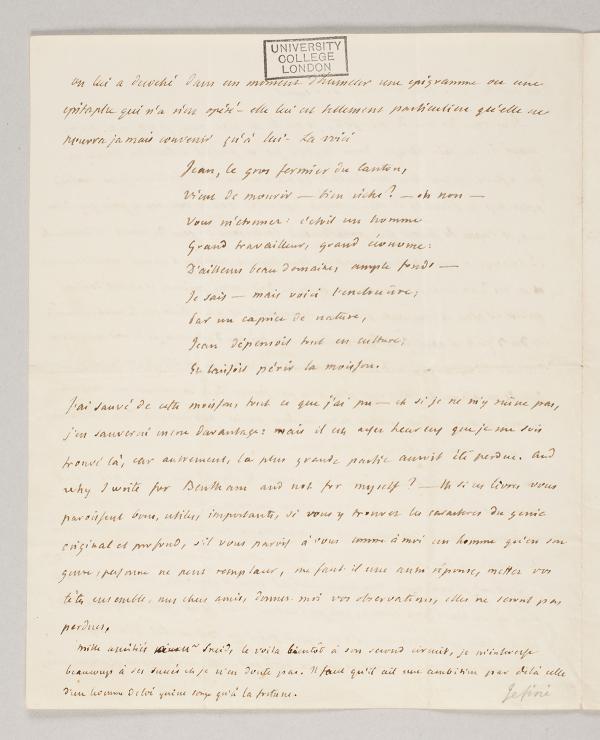 UNIVERSITY
COLLEGE
LONDON
on lui a décoché dans un moment d'humeur une epigramme ou une
epitaphe qui n'a rien opéré - elle lui est tellement particuliere qu'elle ne
pourra jamais convenir qu'à lui - La voici
Jean, le gros fermier du canton,
Vient de mourir — bien riche? — oh non —
Vous m'étonnez: c'étoit un homme
Grand travailleur, grand économe:
D'ailleurs beau domaine, ample fonds —
Je sais — mais voici l'enclouûre;
Par un caprice de nature,
Jean dépensoit tout en culture;
Et laissoit périr la moisson.
J'ai sauvé de cette moisson, tout ce que j'ai pu — et si je ne m'y ruine pas,
j'en sauverai encore davantage: mais il est assez heureux que je me sois
trouvé là, car autrement, la plus grande partie auroit été perdue. And
why I write for Bentham and not for myself? — Ah si ces livres vous
paroissent bons, utiles, importants, si vous y trouvez les caracteres du genie
original et profond, s'il vous paroît à vous comme à moi un homme qu'en son
genre, personne ne peut remplacer, me faut-il une autre réponse, mettez vos
têtes ensemble, mes chers amis, donnez-moi vos observations, elles ne seront pas
perdues.
Mille amitiés le voila bientôt à son second circuit, je m'interesse
beaucoup à ses succès et je n'en doute pas. Il faut qu'il ait une ambition par delà celle
d'un homme de loi qui ne songe qu'à la fortune.